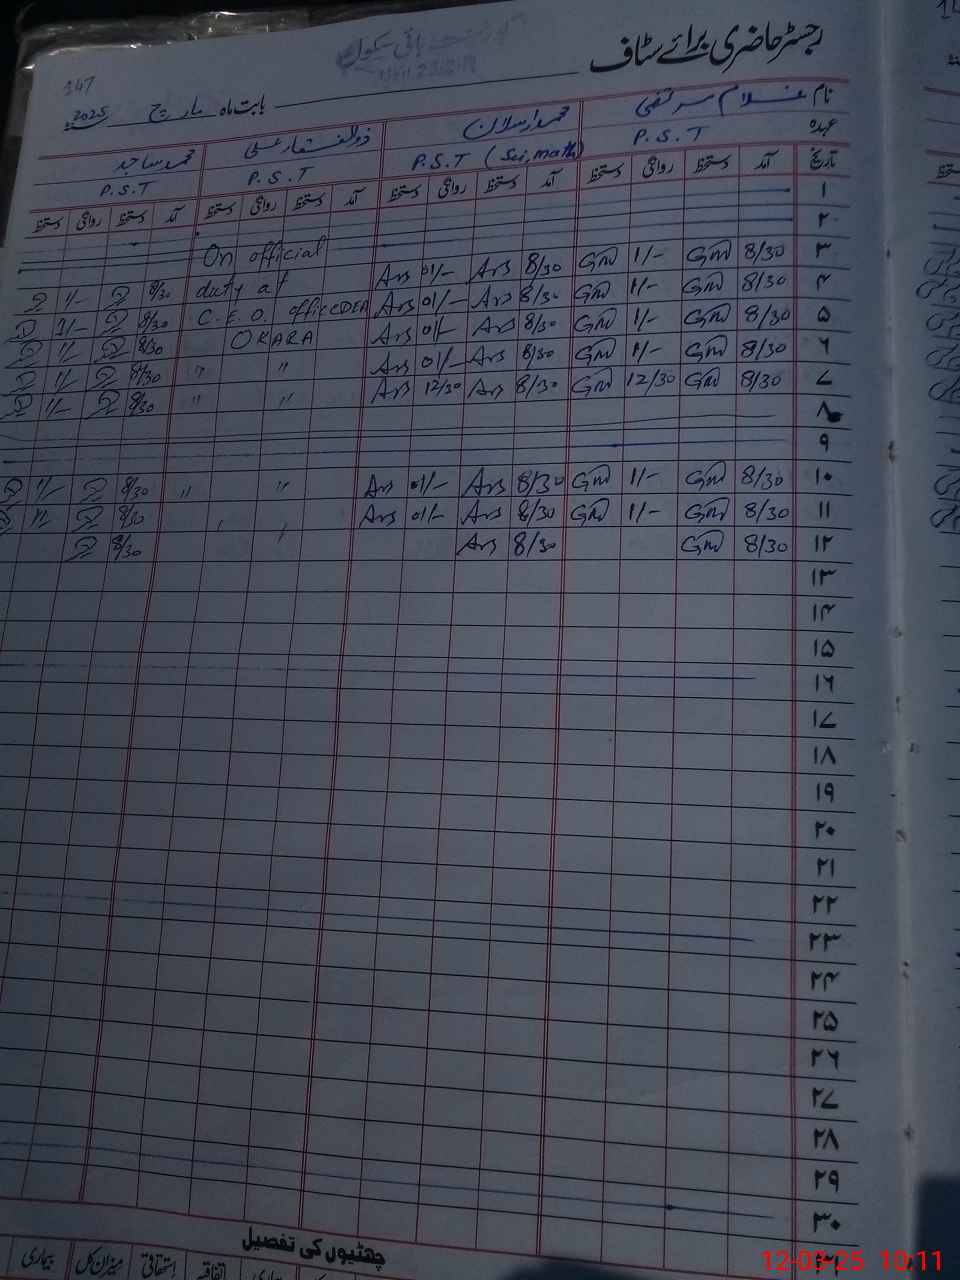 رجسٹر حاضری برائے سٹاف
147
بابت ماہ مارچ 2025
نام غلام مرتضیٰ محمد ارسلان ذوالفقار علی محمد ساجد
عہدہ P.S.T P.S.T (Sci, math) P.S.T P.S.T
تاریخ آمد دستخط روانگی دستخط آمد دستخط روانگی دستخط آمد دستخط روانگی دستخط آمد دستخط روانگی دستخط
۱
۲
۳ 8/30 GM 1/- GM 8/30 Ars 01/- Ars On official 8/30 1/-
۴ 8/30 GM 1/- GM 8/30 Ars 01/- Ars duty at 8/30 1/-
۵ 8/30 GM 1/- GM 8/30 Ars 01/- Ars C.E.O. office DEA 8/30 1/-
۶ 8/30 GM 1/- GM 8/30 Ars 01/- Ars OKARA 8/30 1/-
۷ 8/30 GM 12/30 GM 8/30 Ars 12/30 Ars " " 8/30 1/-
۸
۹
۱۰ 8/30 GM 1/- GM 8/30 Ars 01/- Ars " " 8/30 1/-
۱۱ 8/30 GM 1/- GM 8/30 Ars 01/- Ars 8/30
۱۲ 8/30 GM 8/30 Ars 8/30
۱۳
۱۴
۱۵
۱۶
۱۷
۱۸
۱۹
۲۰
۲۱
۲۲
۲۳
۲۴
۲۵
۲۶
۲۷
۲۸
۲۹
۳۰
چھٹیوں کی تفصیل
اتفاقیہ استحقاقی میزان کل بیماری
12-03-25 10:11